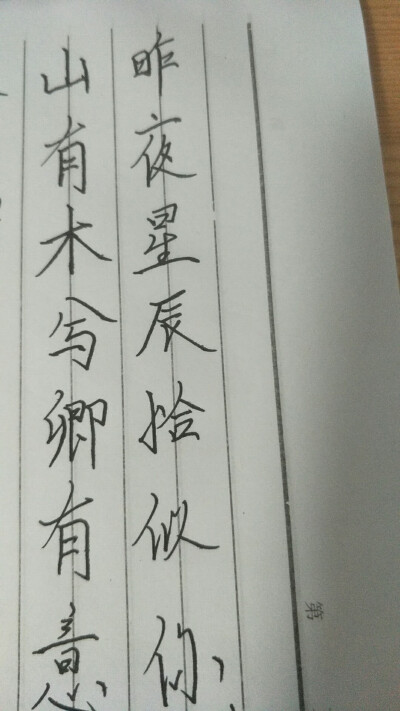 昨夜星辰拾似你
山有木兮卿有意
第